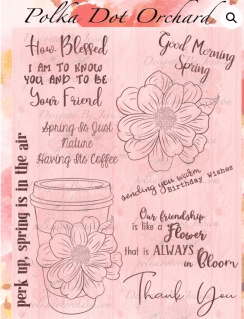 Polka Dot Orchard
How Blessed
I AM TO KNOW
YOU AND TO BE
Your Friend
Good Morning
Spring
Spring Is Just
Nature
Having Its Coffee
perk up, spring is in the air
sending you warm
Birthday wishes
Our friendship
is like a Flower
that is ALWAYS
in Bloom
Thank You